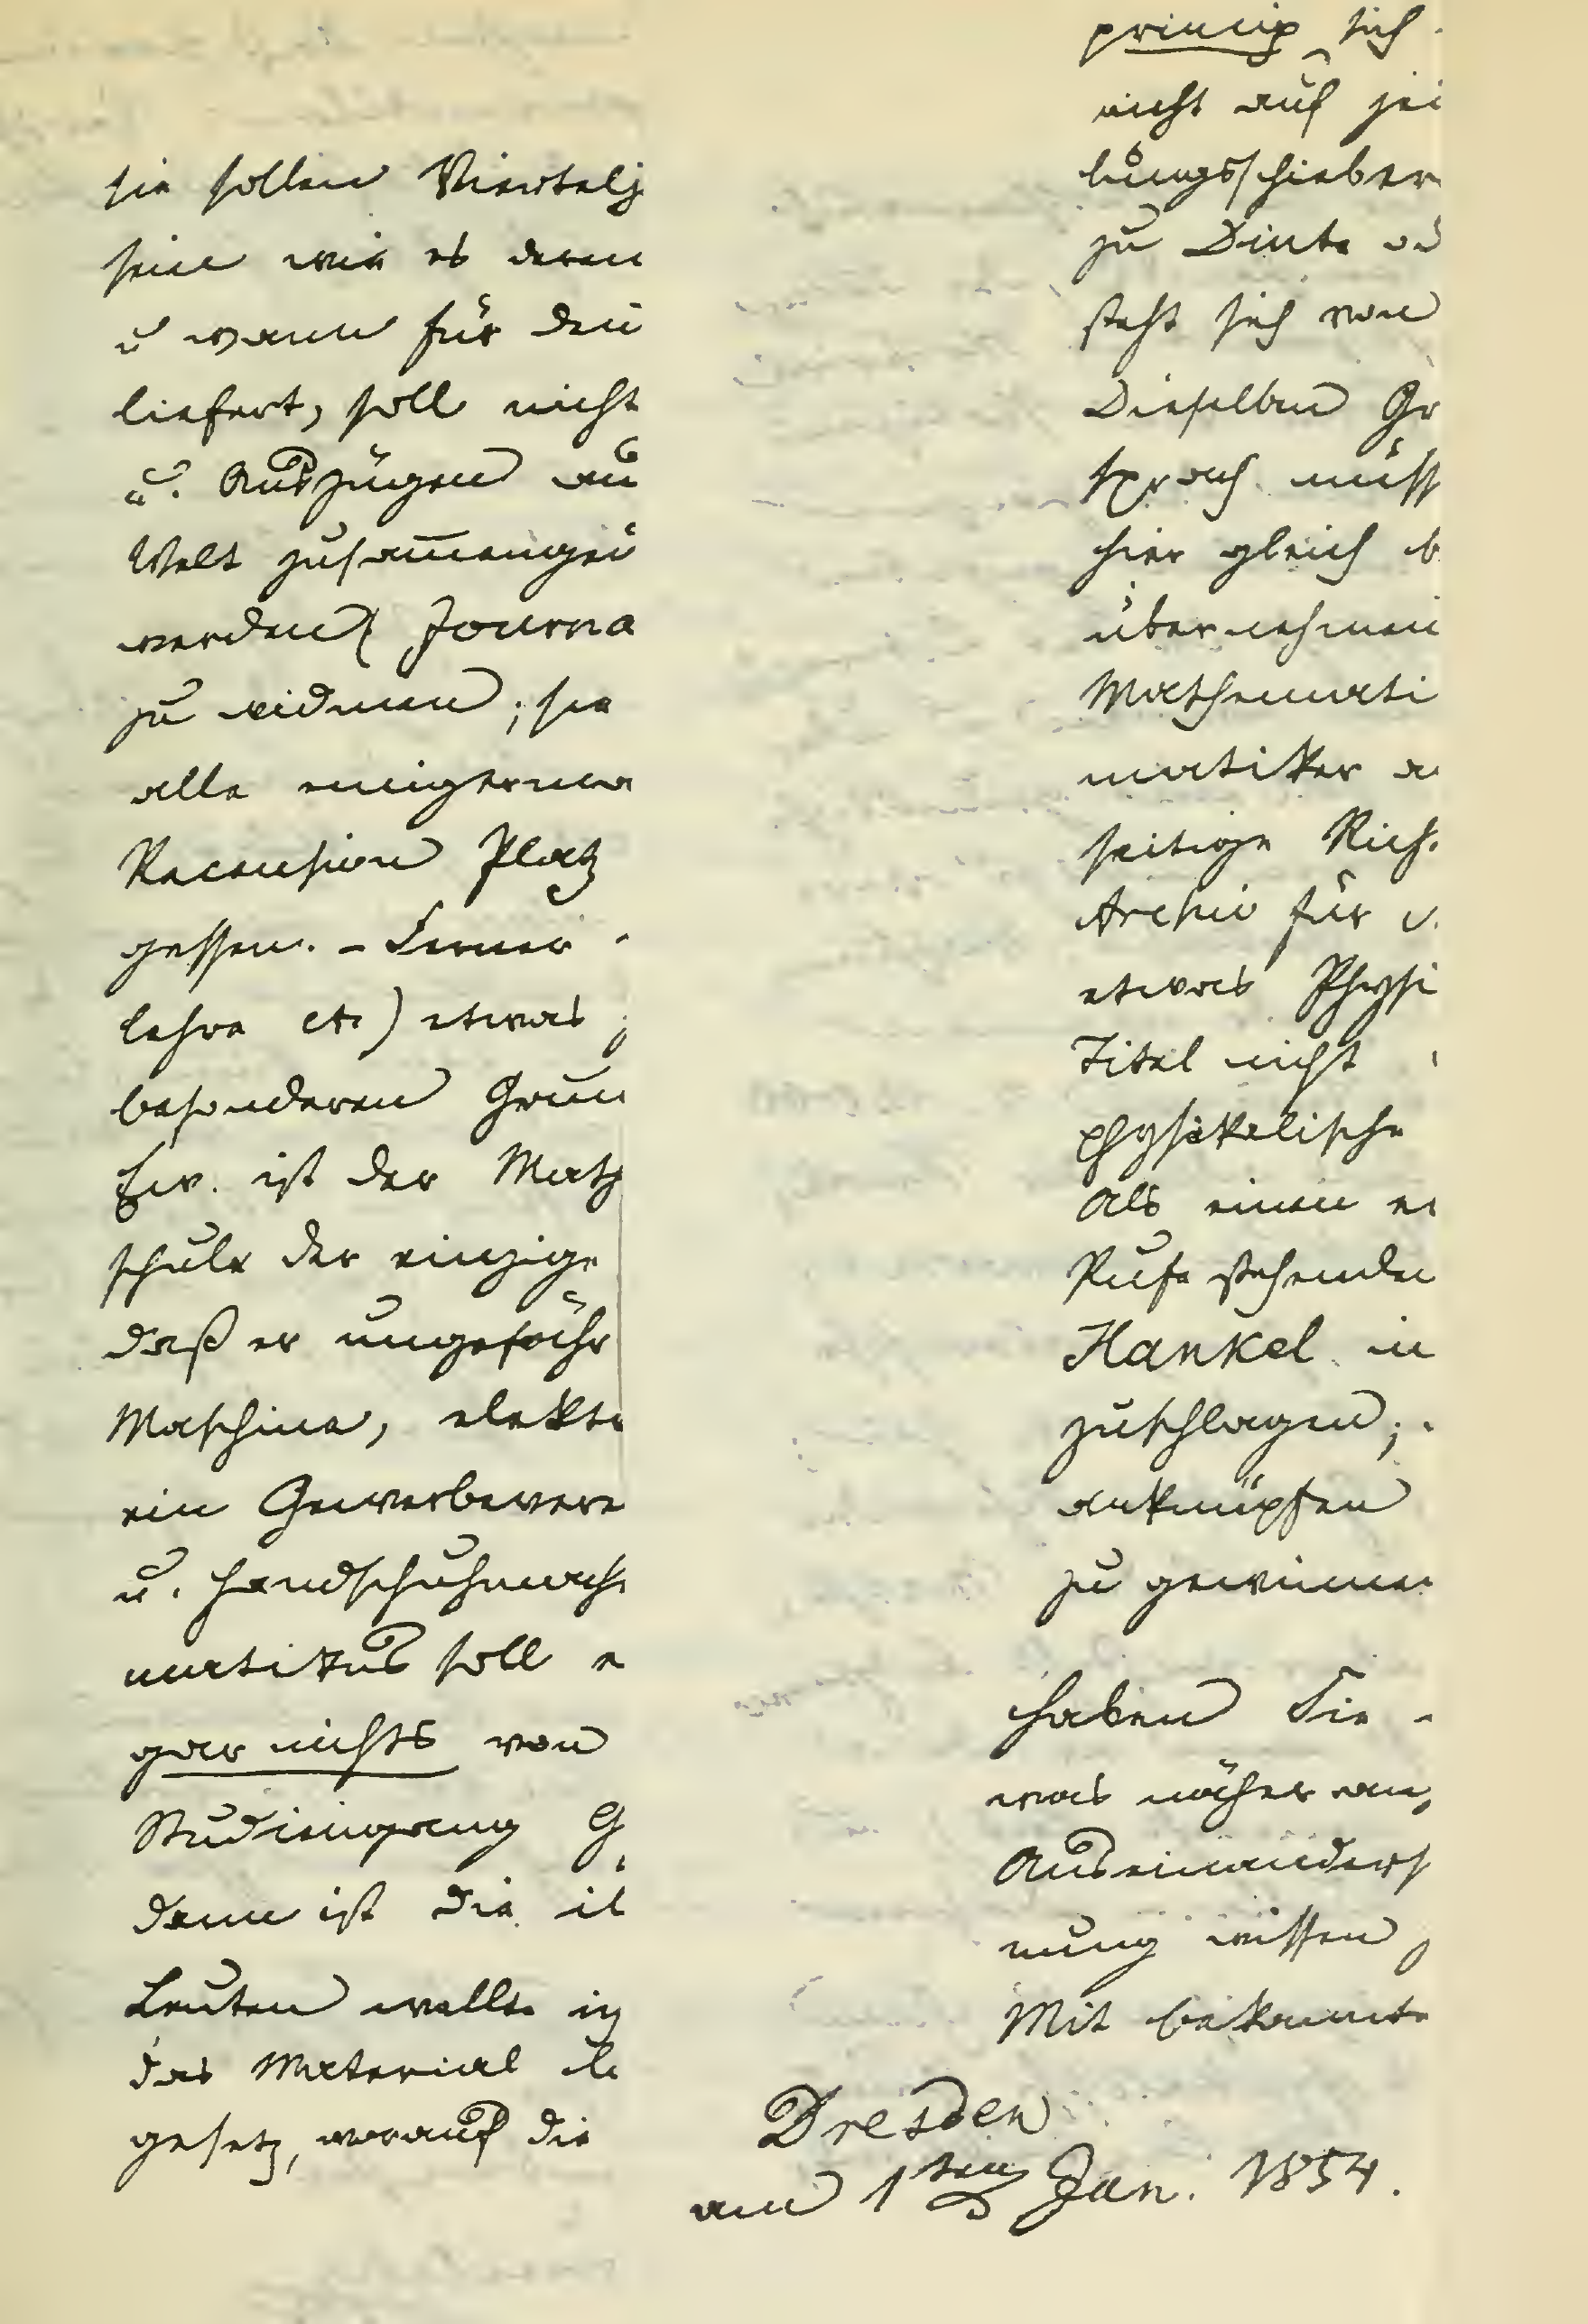 sie sollen Viertelj
sein wie es denen
u wann für den
liefert, soll nicht
u. Auszügen au
Welt zusam̅engei
werden( Journa
zu widmen; sie
alle einigerma
Recension Platz
gessen. – Ferner
lehre etc) etwas
besonderen Grun
Ew. ist der Math
schule der einzige
daß er ungefähr
Maschine, elektr
ein Gewerbevere
u. Handschuhmach
matikus soll e
gar nichts von
Studiengang G
denn ist die
Leuten wollte
das Material
gesetz, worauf die
princip sich
nicht auf
lungsschieber
zu Dinte od
steht sich von
Dieselben Gr
sprach müss
hier gleich b
übernehmen
Mathemati
matiker a
seitige Rich
Archiv für
etwas Physi
Titel nicht
physikalische
Als einen
Rufe stehenden
Hankel in
zuschlagen;
anknüpfen
zu gewinnen
haben Sie
was näher an,
Auseinanders
nung wissen
Mit bekannte
Dresden
am 1ten Jan. 1854.